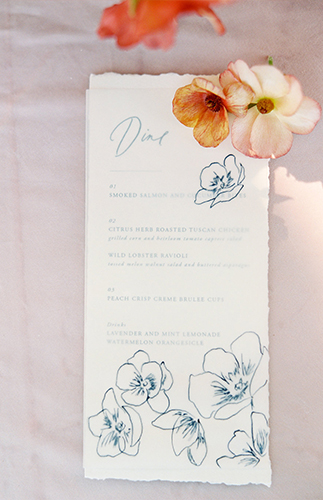 Dine
#1
SMOKED SALMON AND
#2
CITRUS HERB ROASTED TUSCAN CHICKEN
grilled corn and heirloom tomato caprese salad
WILD LOBSTER RAVIOLI
mixed melon walnut salad and buttered asparagus
#3
PEACH CRISP CREME BRULEE CUPS
Drink:
LAVENDER AND MINT LEMONADE
WATERMELON ORANGESICLE